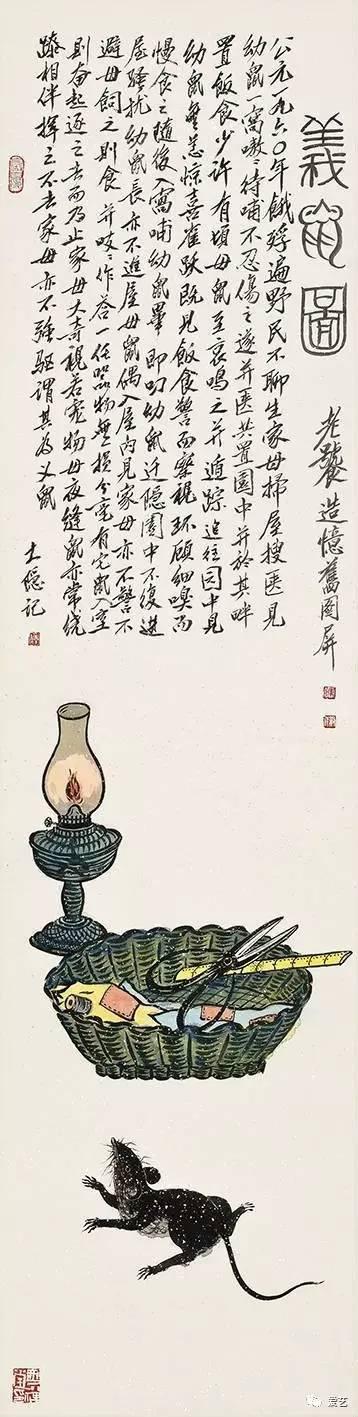 義鼠圖
老甕造憶舊圖屏
公元一九六〇年餓殍遍野民不聊生家母掃屋搜匧見
幼鼠一窩嗷嗷待哺不忍傷之遂并匧共置園中并於其畔
置飯食少許有頃母鼠至哀鳴之并遁踪追往园中見
幼鼠無恙惊喜雀跃既見飯食警而察視环顾細嗅而
慢食之随後一窩哺幼鼠畢即叼幼鼠迁隐園中不復進
屋騷扰幼鼠長亦不進屋母鼠偶入屋内見家母亦不警不
避母飼之則食并吱吱作答一任器物無損分毫有它鼠入室
則奋起逐之去而乃止家母大奇視若宠物母夜缝鼠亦常繞
蹤相伴挥之不去家母亦不強驱謂其為义鼠
土隐记
爱艺